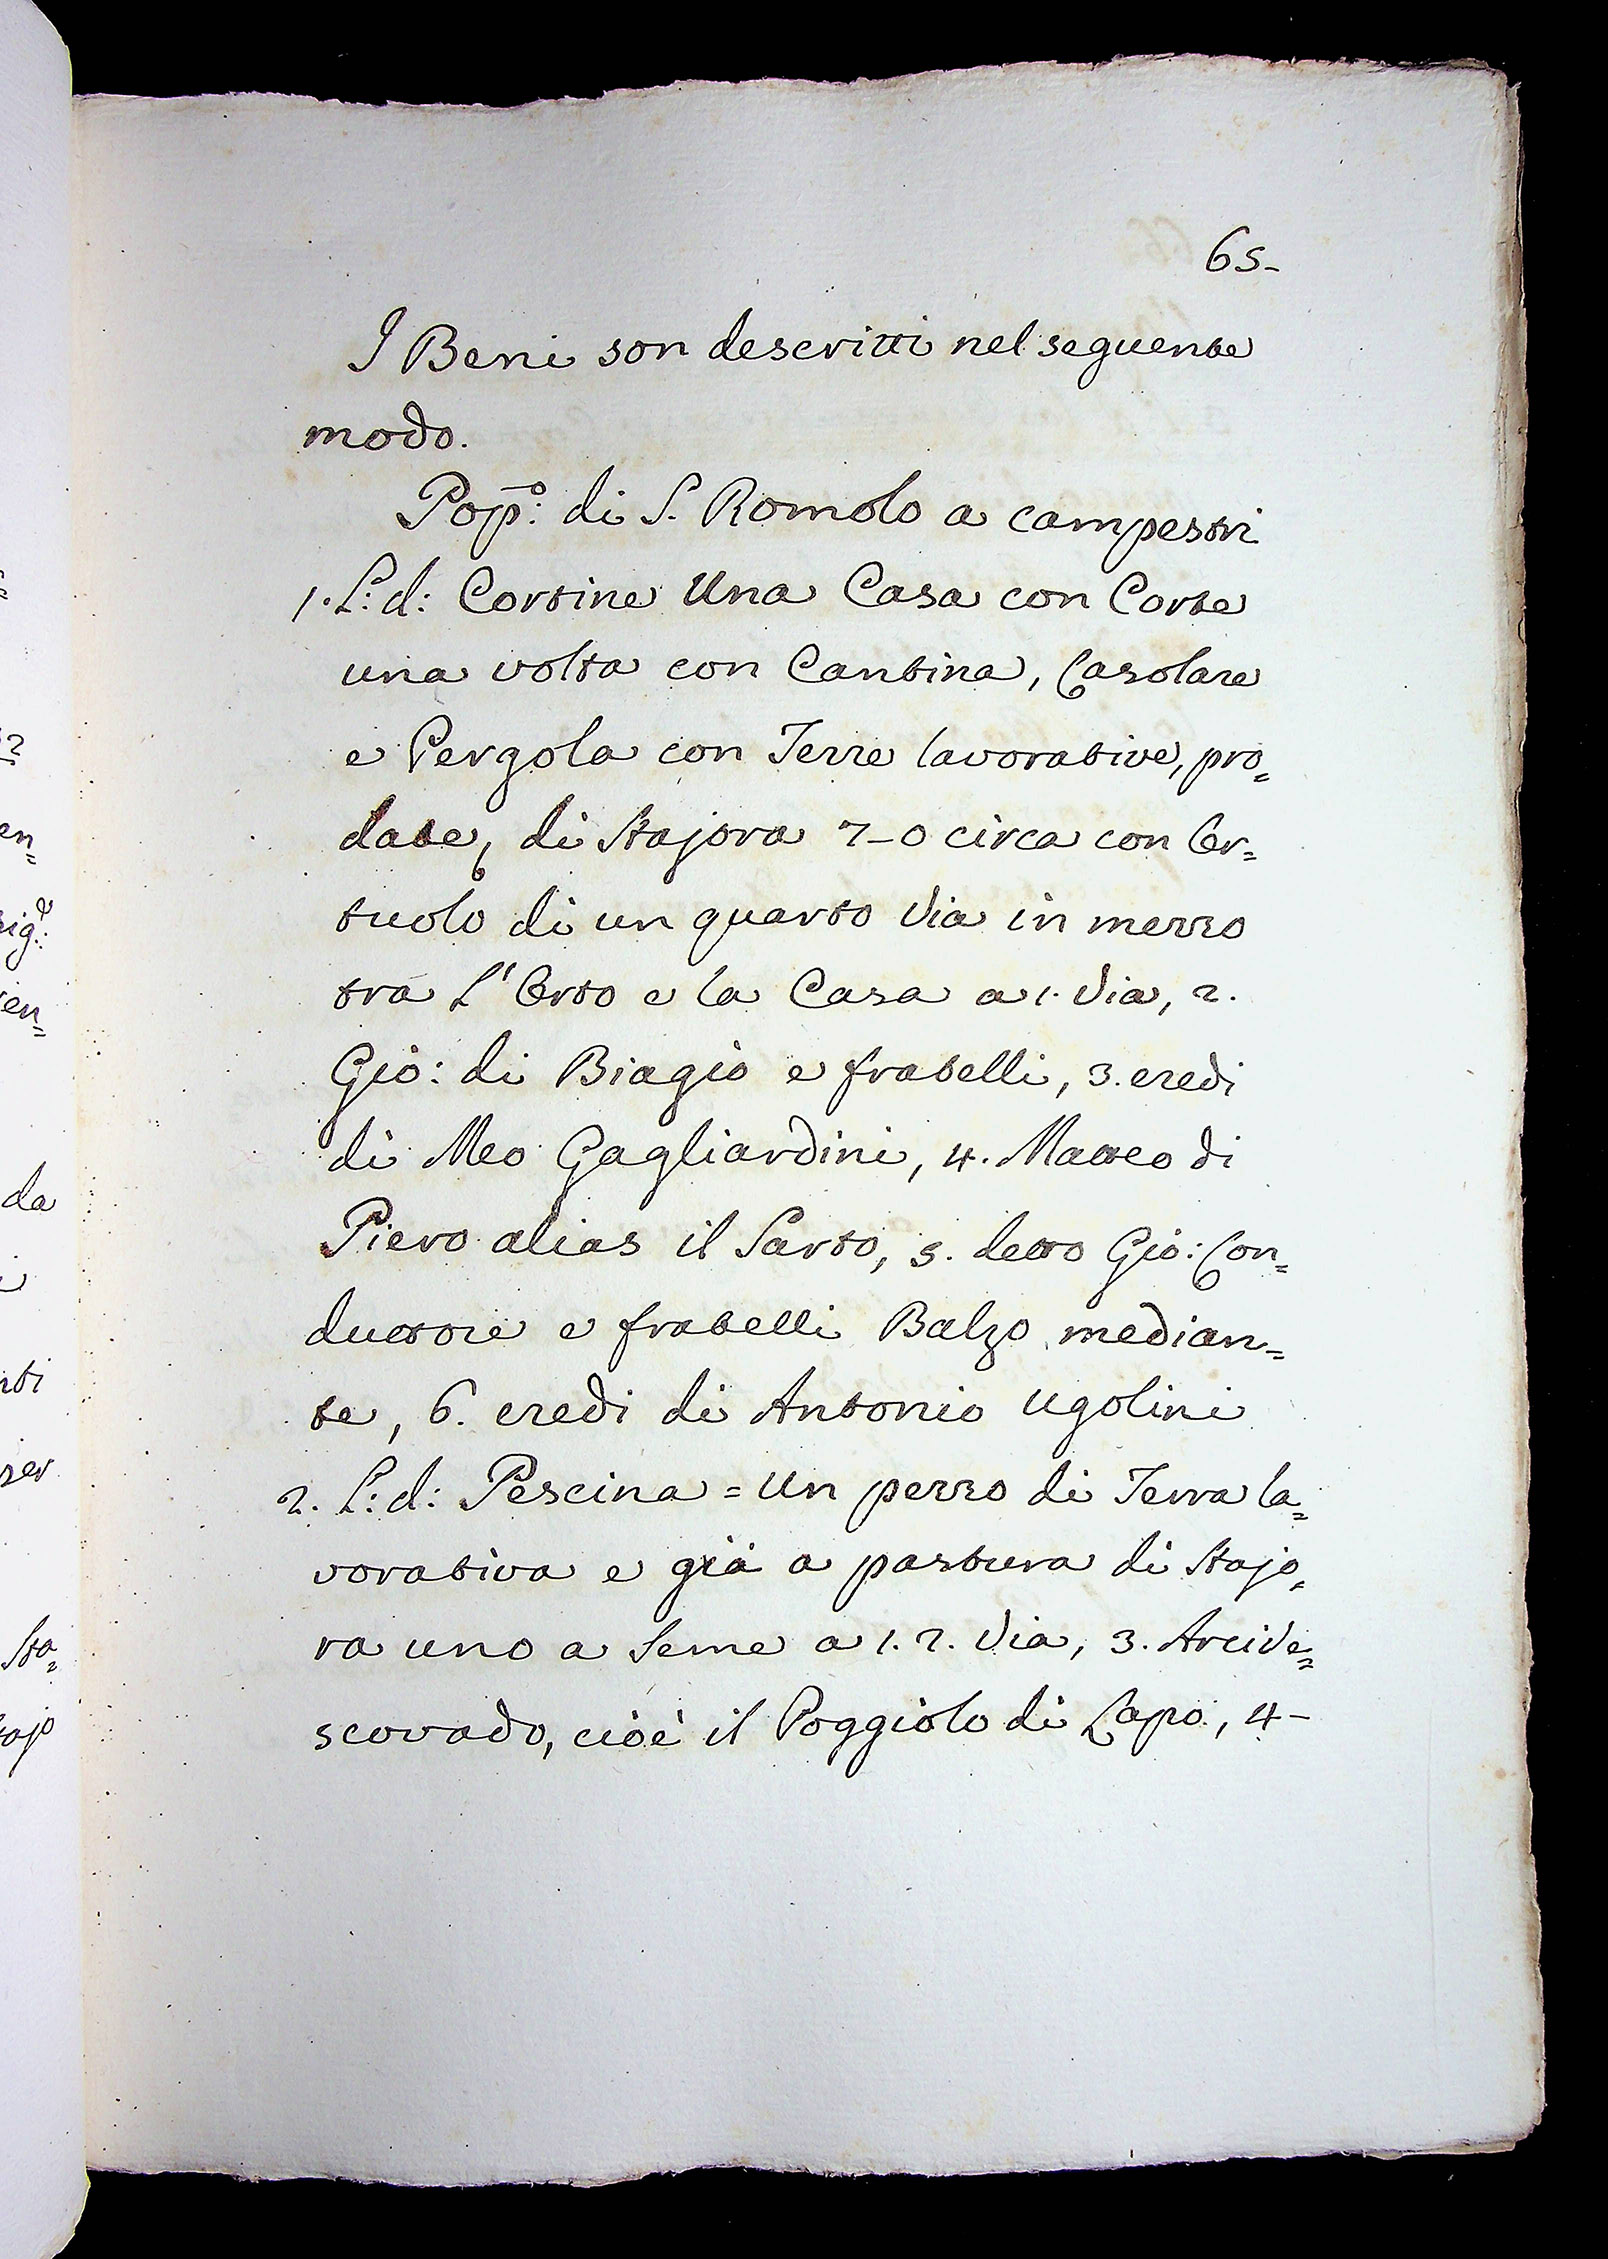 65-
I Beni son descritti nel seguente
modo.
Pop̄.º: di S. Romolo a campestri
1. L: d: Cortine Una Casa con Corte
una volta con Cantina, Casolare
e Pergola con Terre lavorative, pro=
date, di Stajora 7-0 circa con Or=
tuolo di un quarto Via in mezzo
tra L'Orto e la Casa a 1. Via, 2.
Gio: di Biagio e fratelli, 3. eredi
di Meo Gagliardini, 4. Matteo di
Piero alias il Sarto, 5. detto Gio: Con=
duttore e fratelli Balzo median=
te, 6. eredi di Antonio Ugolini
2. L: d: Pescina = Un pezzo di Terra la=
vorativa e già a pastura di Stajo=
ra uno a Seme a 1. 2. Via, 3. Arcive=
scovado, cioè il Poggiolo di Lapo, 4-
en=
sig.e:
en=
da
nti
zer
Sta=
ajo